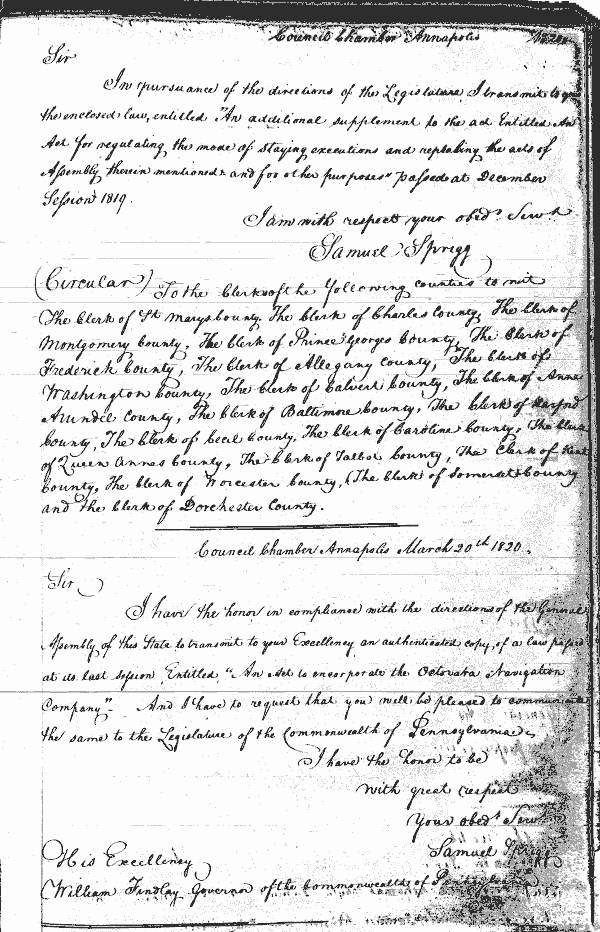 Council Chamber Annapolis 1820
Sir
In pursuance of the directions of the Legislature, I transmit to you
the enclosed law, entitled "An additional supplement to the act Entitled An
Act for regulating the mode of staying executions and repealing the acts of
Assembly therein mentioned and for other purposes" passed at December
Session 1819.
I am with respect your obedt. Servt.
Samuel Sprigg
(Circular) To the Clerks of the following counties to wit
The Clerk of St Marys County. The Clerk of Charles County, The Clerk of
Montgomery County, The Clerk of Prince Georges County, The Clerk of
Frederick County, The Clerk of Allegany County, The Clerk of
Washington County, The Clerk of Calvert County, The Clerk of Anne
Arundel County, The Clerk of Baltimore County, The Clerk of Harford
County, The Clerk of Cecil County, The Clerk of Caroline County, The Clerk
of Queen Annes County, The Clerk of Talbot County, The Clerk of Kent
County, The Clerk of Worcester County, (The Clerk of Somerset County
and the Clerk of Dorchester County.
Council Chamber Annapolis March 20th 1820.
Sir
I have the honor in compliance with the directions of the General
Assembly of this State to transmit to your Excellency an authenticated copy, of a law passed
at its last session Entitled, "An Act to incorporate the Octorara Navigation
Company". And I have to request that you will be pleased to communicate
the same to the Legislature of the Commonwealth of Pennsylvania
I have the honor to be
with great respect
Your obedt. Servt.
Samuel Sprigg
His Excellency
William Findlay Governor of the Commonwealth of Pennsylvania